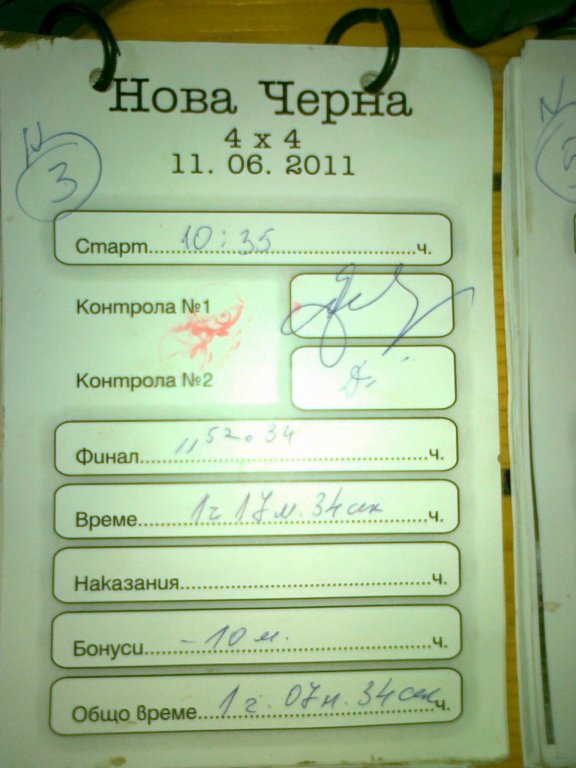 Нова Черна
4 x 4
11. 06. 2011
N 3
Старт 10:35 ч.
Контрола №1
Контрола №2
Финал 11 52. 34 ч.
Време 1ч 17 м. 34 сек ч.
Наказания ч.
Бонуси - 10 м. ч.
Общо време 1 ч. 07 м. 34 сек ч.